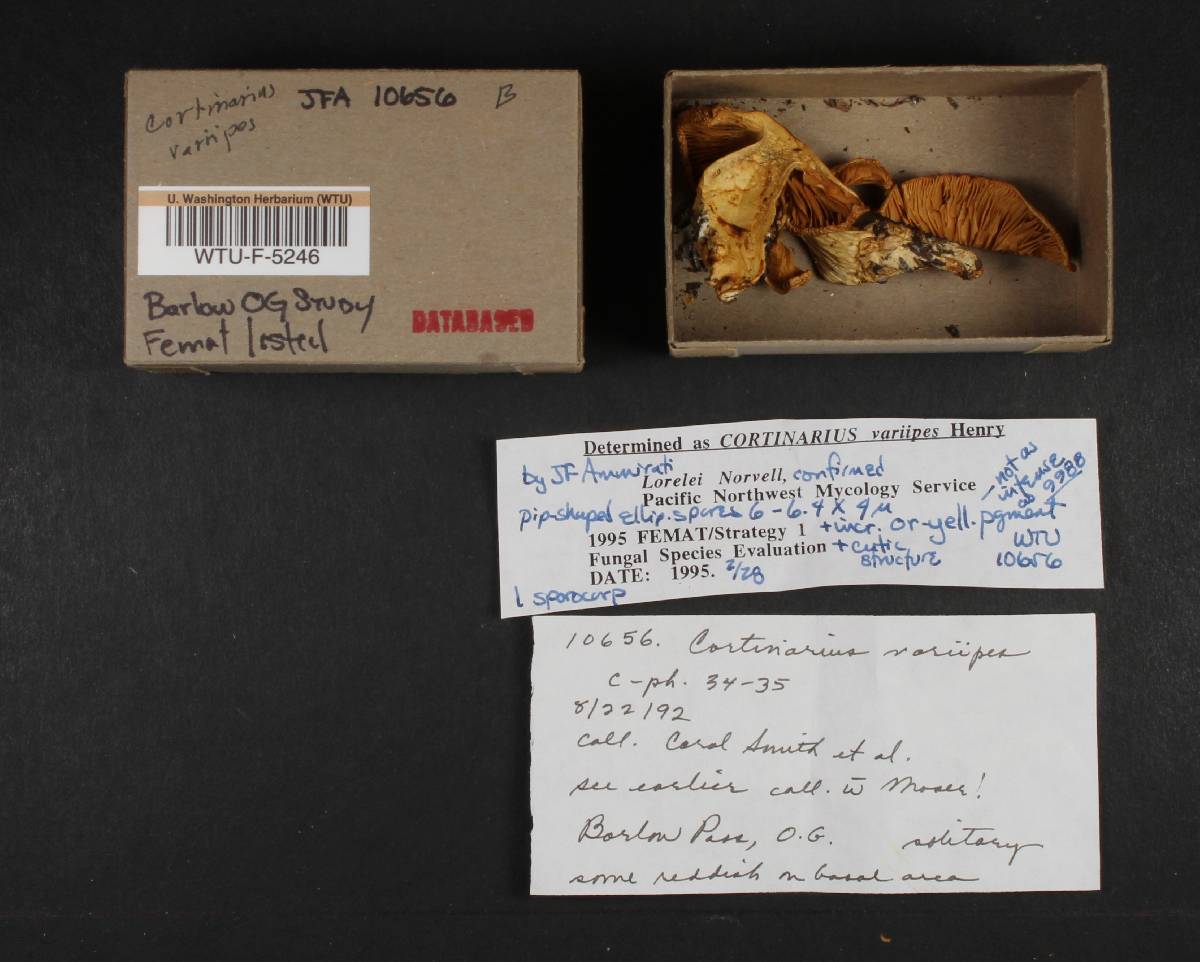 Cortinarius JFA 10656 B
variipes
U. Washington Herbarium (WTU)
WTU-F-5246
Barlow OG Study
Femat listed
DATABASED
Determined as CORTINARIUS variipes Henry
by JF Ammirati
Lorelei Norvell, confirmed
Pacific Northwest Mycology Service
- not as
intense
as 9988
pip-shaped ellip. spores 6-6.4 X 4 µ
1995 FEMAT/Strategy 1 + incr. or-yell. pgment
Fungal Species Evaluation + cutic
structure
WTU
10656
DATE: 1995. 2/28
1 sporocarp
10656. Cortinarius variipes
c-ph. 34-35
8/22/92
coll. Carol Smith et al.
see earlier coll. w̄ Moser!
Barlow Pass, O.G. solitary
some reddish on basal area